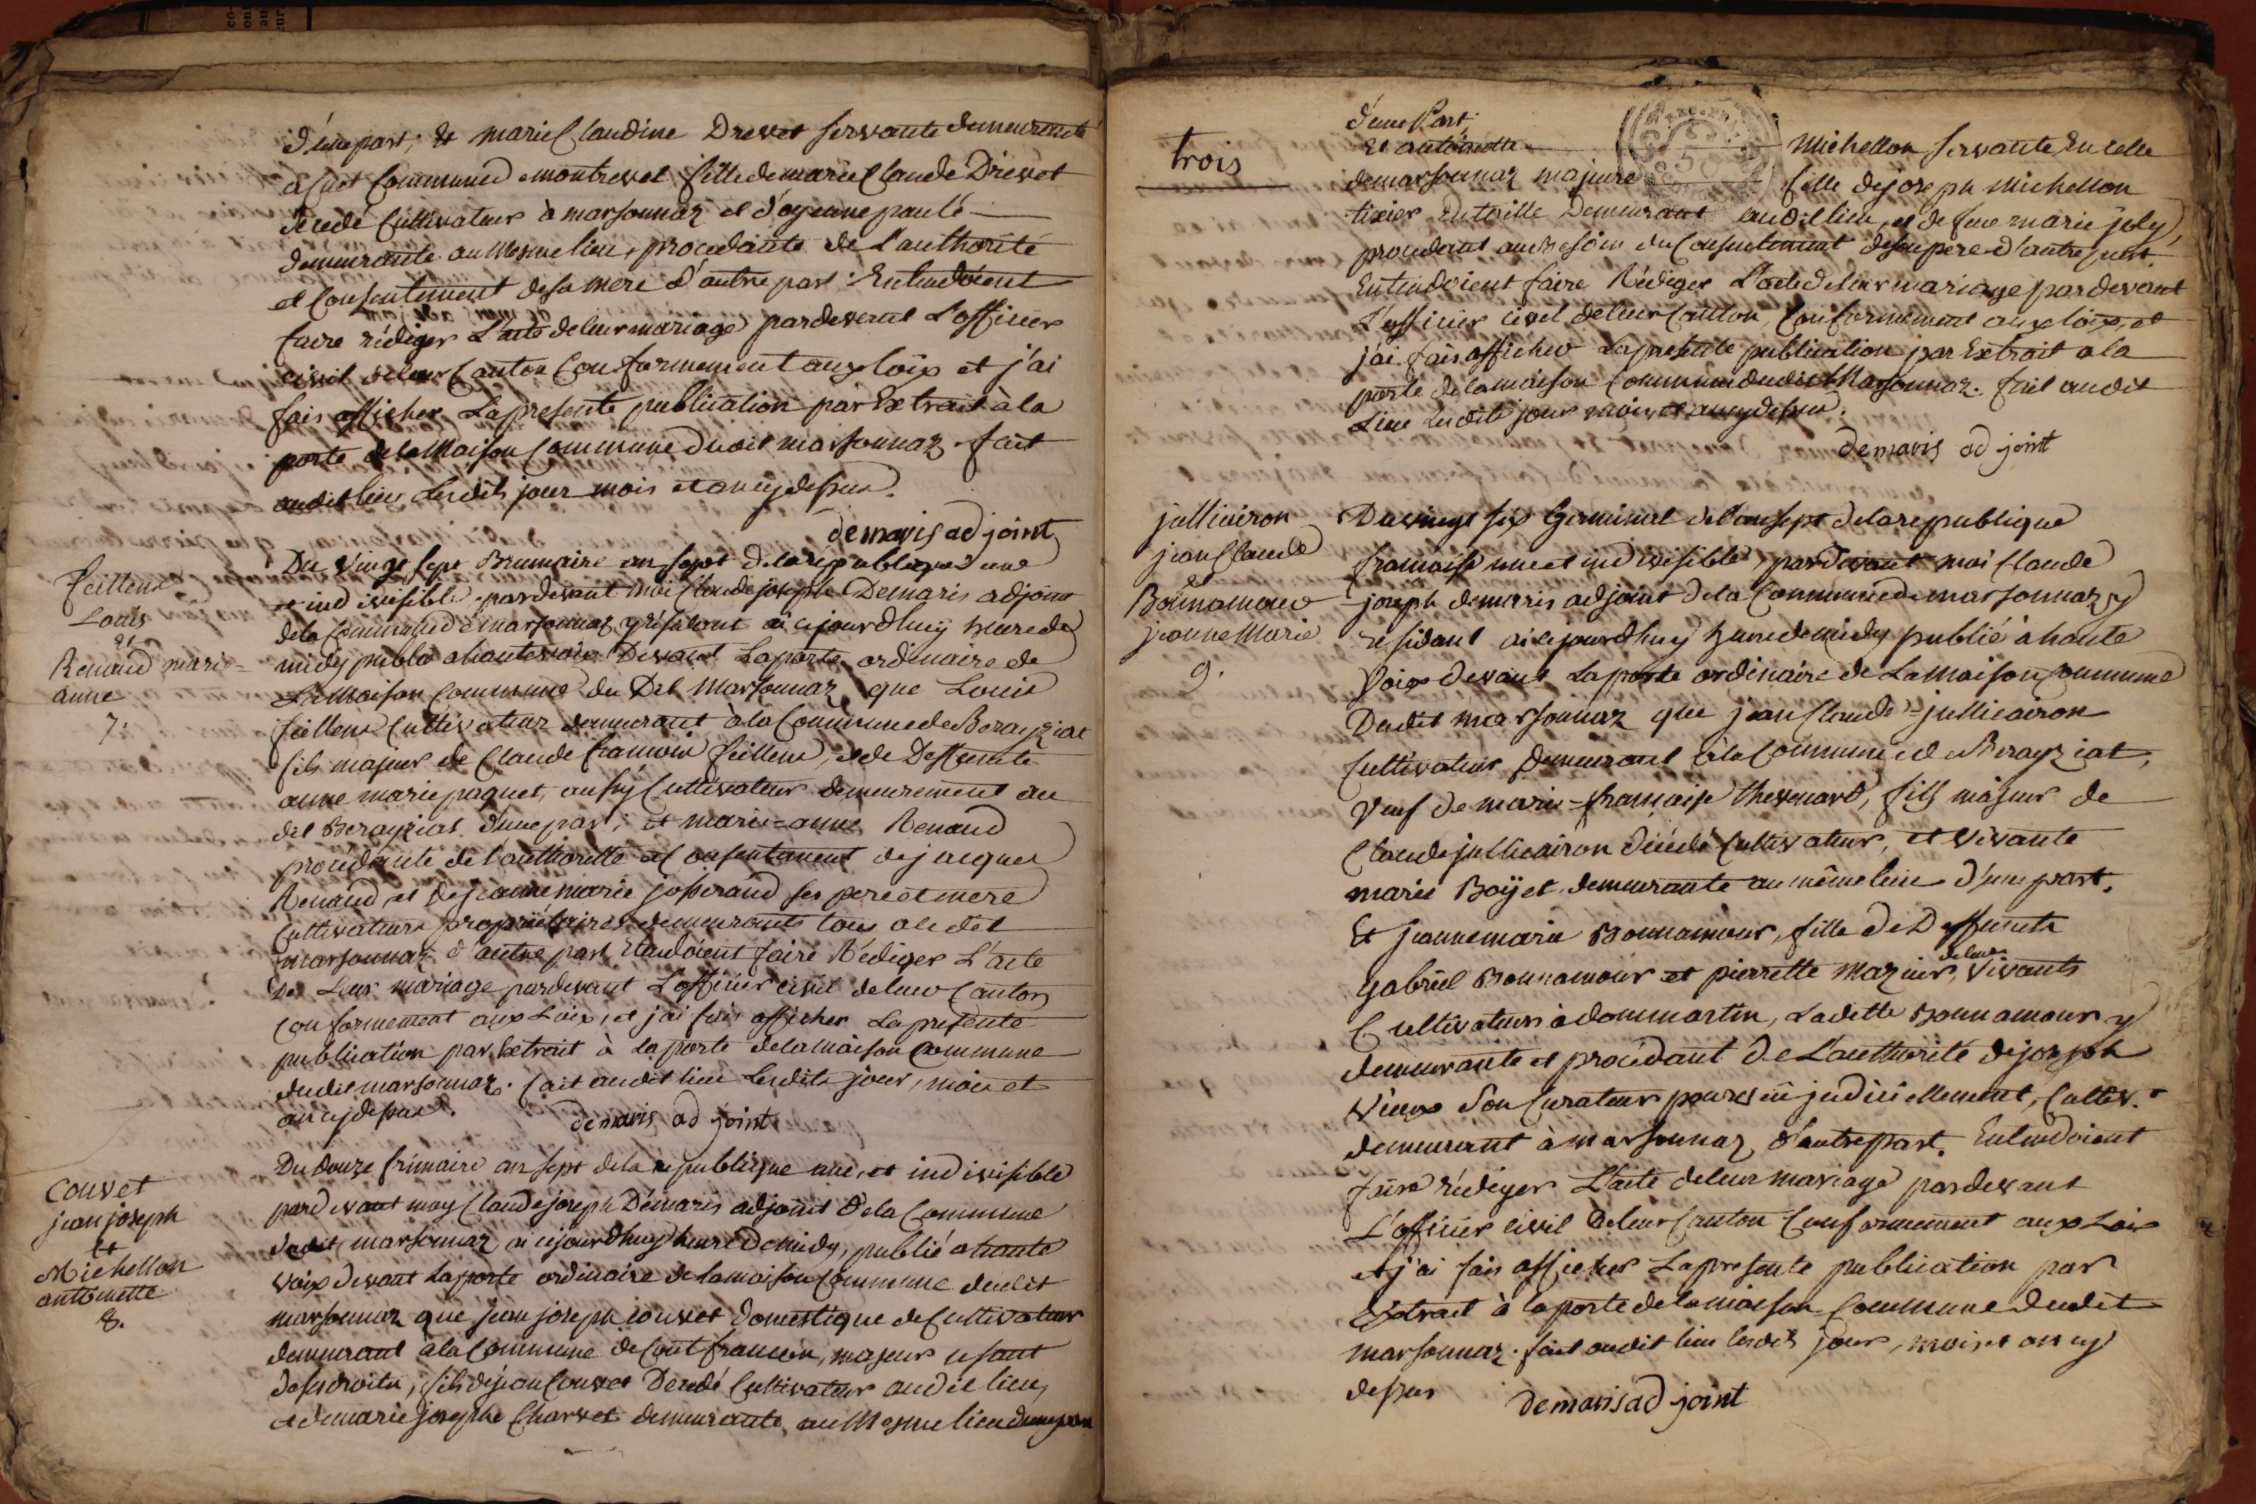 d'une part, & marie Claudine Drevet servante demeurante
a Cuet Commune de montrevel fille de marie Claude Drevet
décedé Cultivateur à marsonnaz et d'oyenne paulé
demeurante au mesme lieu, procedante de L'authorité
et Consentement de sa mere d'autre part. Entendoient
faire rédiger L'acte de leur mariage pardevant L'officier
civil de leur Canton Conformement aux loix et j'ai
fais afficher La presente publication par Extrait à la
porte de la Maison Commune dudit marsonnaz. fait
audit lieu Lesdits jour mois et an cy dessus.
demaris ad joint
feillens
Louis
et
Renaud marie=
anne
7.
Du vingt sept Brumaire an sept de la republique une
et indivisible. pardevant moi Claude joseph Demaris adjoint
de la Commune de marsonnaz y résidant ai cejourdhuy heure de
midy publié a haute voix Devant La porte ordinaire de
La Maison Commune du Dit Marsonnaz que Louis
feillens Cultivateur demeurant à la Commune de Berayziat
fils majeur de Claude françois feillens, et de Deffunte
anne marie paquet, aussy Cultivateur demeurement au
dit Berayziat d'une part; et marie=anne Renaud
procédante de l'authorité et Consentement de jacques
Renaud et de jeanne marie josserand ses pere et mere
Cultivateurs propriétaires demeurants tous audit
marsonnaz d'autre part Entendoient faire Rédiger L'acte
De Leur mariage pardevant L'officier civil de leur Canton
Conformement aux Loix, et j'ai fais afficher La presente
publication par Extrait à la porte de la maison Commune
dudit marsonnaz. fait audit lieu Lesdits jour, mois et
an cy dessus.
demaris ad joint
Couvet
jean joseph
et
Michellon
antoinette
8.
Du douze frimaire an sept de la republique une, et indivisible
pardevant moy Claude joseph Démaris adjoint de la Commune
dudit marsonnaz ai cejourdhuy heure de midy, publié a haute
voix devant La porte ordinaire de la maison Commune dudit
marsonnaz que jean joseph Couvet domestique de Cultivateur
demeurant a la Commune de Confrançon, majeur usant
de ses droits, fils de jean Couvet Décedé Cultivateur audit lieu,
et de marie josephe Charvet demeurante au Mesme lieu d'une part
trois
d'une Part,
Et antoinette Michellon servante En celle
de marsonnaz majeure fille de joseph Michellon
tixier En toille Demeurant audit lieu, et de feue marie joly,
procedant au besoin du Consentement de son pere d'autre part.
Entendoient faire Rédiger L'acte de leur mariage pardevant
L'officier civil de leur Canton, Conformement aux loix, et
j'ai fais afficher La presente publication par Extrait a la
porte de la maison Commune dudit Marsonnaz. fait audit
Lieu Lesdits jour mois et an cy dessus.
demaris ad joint
jullieiron
jean Claude
Bonnamour
jeanne Marie
9.
Du vingt six Germinal de l'an sept de la republique
françoise une et indivisible, pardevant moi Claude
joseph demaris adjoint de la Commune de marsonnaz y
residant ai cejourdhuy heure de midy publié à haute
Voix devant La porte ordinaire de La Maison Commune
Dudit marsonnaz que jean Claude jullieiron
Cultivateur Demeurant à la Commune de Berayziat,
Veuf de marie=françoise thevenard, fils majeur de
Claude jullieiron décédé Cultivateur, et vivante
marie Boÿet demeurante au même lieu d'une part.
Et jeanne marie Bonnamour, fille De Deffunts
Gabriel Bonnamour et pierrette Mazuir, de leurs Vivants
Cultivateurs à dommartin, Ladette Bonnamour y
demeurante et procédant de L'authorité de joseph
Vieux son Curateur pourvu judiciellement, Cultiv.r
demeurant à marsonnaz d'autre part. Entendoient
faire rédiger L'acte de leur mariage pardevant
L'officier civil de leur Canton Conformement aux Loix
et j'ai fais afficher La presente publication par
Extrait à la porte de la maison Commune dudit
marsonnaz. fait audit lieu lesdits jour, mois et an cy
dessus
demaris ad joint